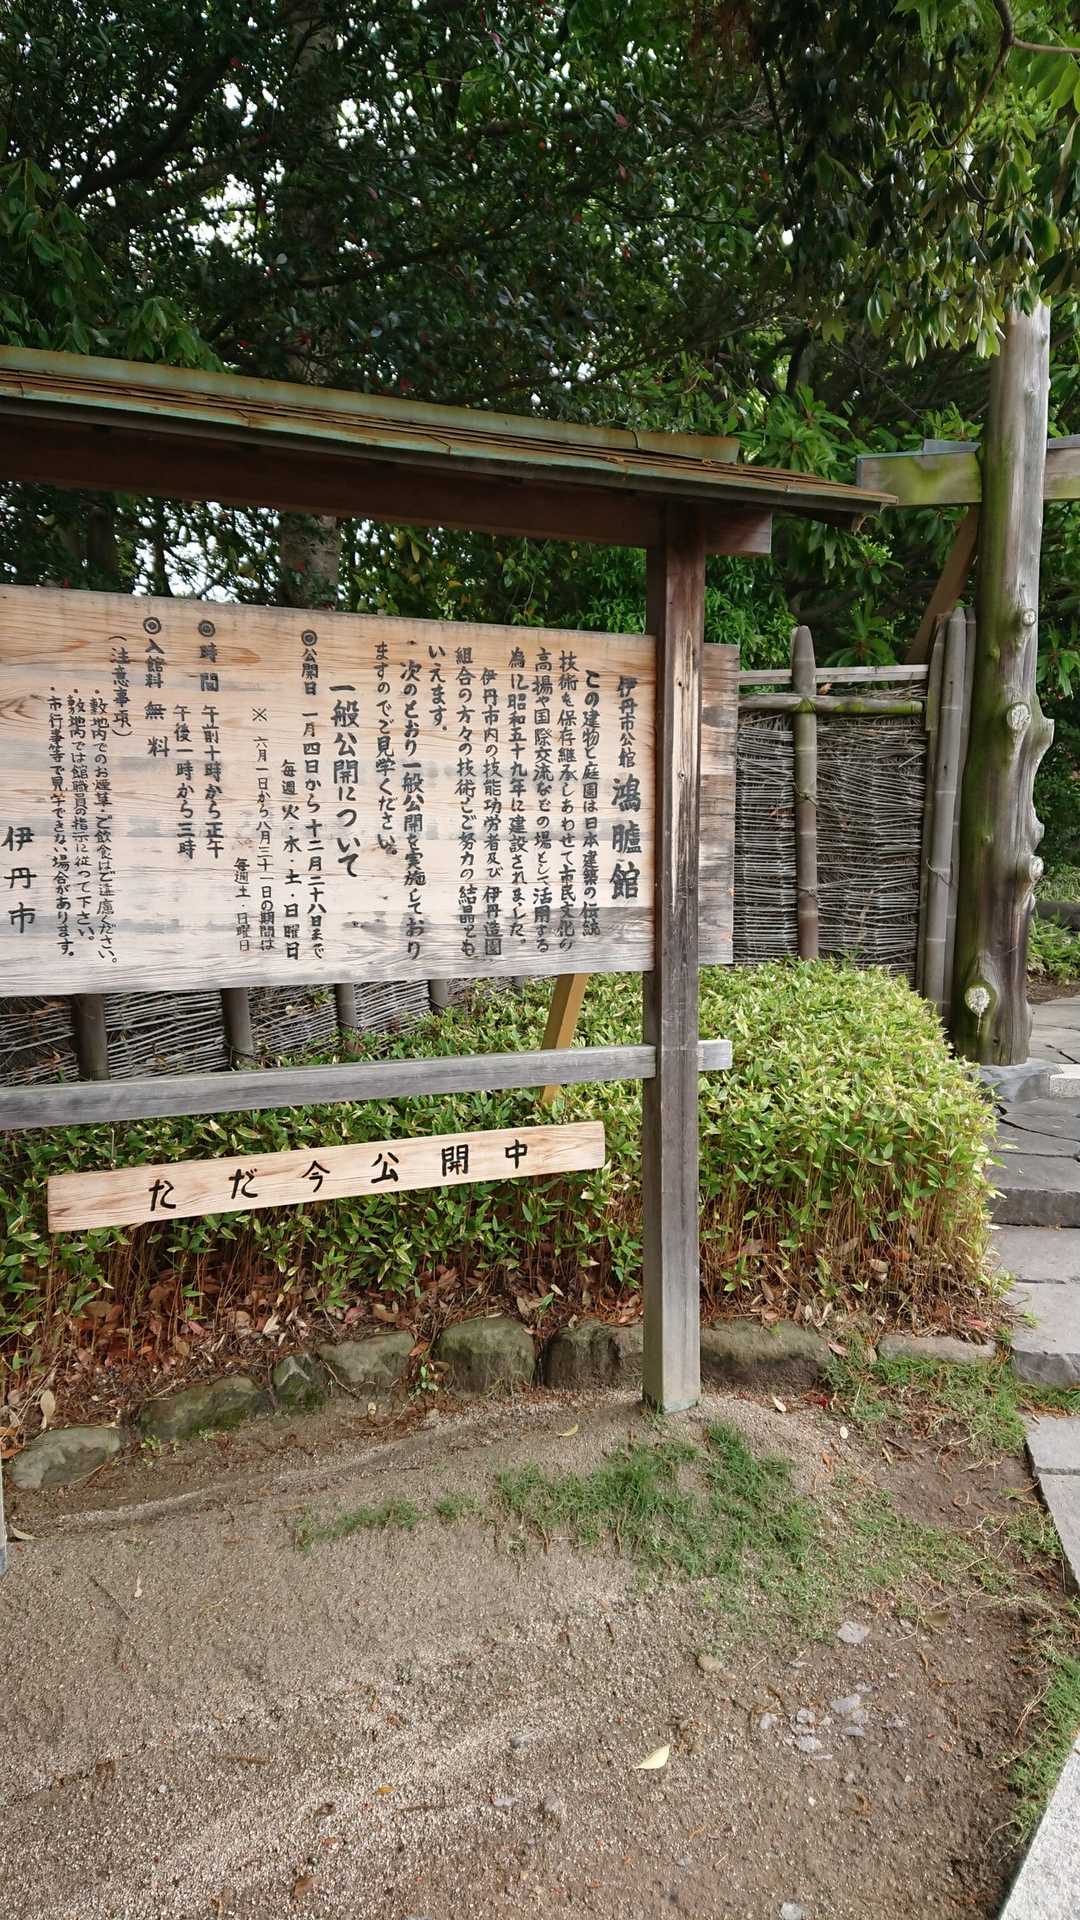 伊丹市公館 鴻臚館
この建物と庭園は日本建築の伝統
技術を保存継承しあわせて市民文化の
高揚や国際交流などの場として活用する
為に昭和五十九年に建設されました。
伊丹市内の技能功労者及び伊丹造園
組合の方々の技術とご努力の結晶とも
いえます。
次のとおり一般公開を実施しており
ますのでご見学ください。
一般公開について
◎公開日 一月四日から十二月二十八日まで
毎週火・水・土・日曜日
※ 六月一日から八月三十一日の期間は
毎週土・日曜日
◎時間 午前十時から正午
午後一時から三時
◎入館料 無料
(注意事項)
・敷地内でのお煙草・ご飲食はご遠慮ください。
・敷地内では館職員の指示に従って下さい。
・市行事等で見学できない場合があります。
伊丹市
ただ今公開中